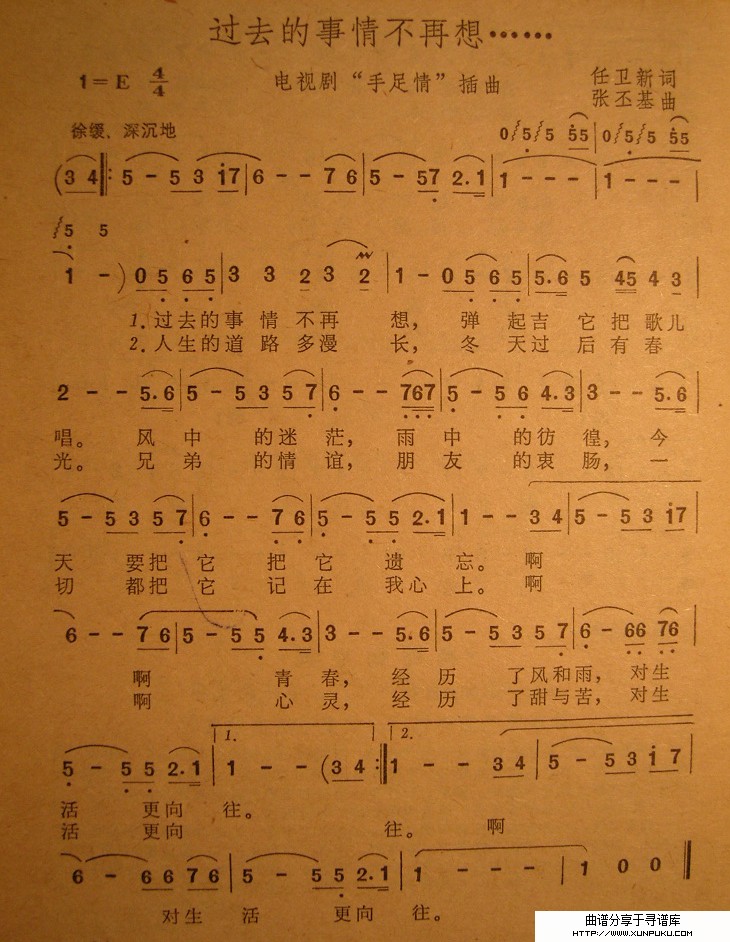 过去的事情不再想……
1=E 4/4 电视剧“手足情”插曲 任卫新词
张丕基曲
徐缓、深沉地
0 5 5 55 | 0 5 5 55
(3 4 |: 5 - 5 3 i7 | 6 - - 7 6 | 5 - 57 2.1 | 1 - - - | 1 - - - |
5 5
1 - ) 0 5 6 5 | 3 3 2 3 2 | 1 - 0 5 6 5 | 5.6 5 45 4 3 |
1.过去的事 情 不再 想， 弹 起吉 它把歌儿
2.人生的道 路 多漫 长， 冬 天过 后有春
2 - - 5.6 | 5 - 5 3 5 7 | 6 - - 767 | 5 - 5 6 4.3 | 3 - - 5.6 |
唱。 风 中 的迷 茫， 雨 中 的彷 徨， 今
光。 兄 弟 的情 谊， 朋 友 的衷 肠， 一
5 - 5 3 5 7 | 6 - - 7 6 | 5 - 5 5 2.1 | 1 - - 3 4 | 5 - 5 3 i7 |
天 要把 它 把 它 遗 忘。 啊
切 都把 它 记 在 我心 上。 啊
6 - - 7 6 | 5 - 5 5 4.3 | 3 - - 5.6 | 5 - 5 3 5 7 | 6 - 66 76 |
啊 青 春， 经 历 了风和雨， 对生
啊 心 灵， 经 历 了甜与苦， 对生
5 - 5 5 2.1 | 1. 1 - - (3 4 :| 2. 1 - - 3 4 | 5 - 5 3 i 7 |
活 更向 往。
活 更向 往。 啊
6 - 6 6 7 6 | 5 - 5 5 2.1 | 1 - - - | 1 0 0 ‖
对生 活 更向 往。
曲谱分享于寻谱库
HTTP://WWW.XUNPUKU.COM